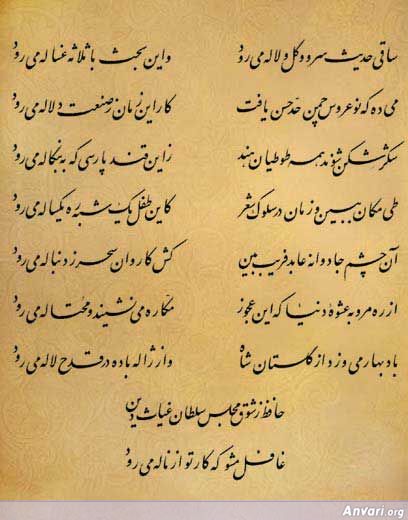 ساقی حدیث سرو و گل و لاله می رود واین بحث با ثلاثه غساله می رود
می ده که نوعروس چمن حد حسن یافت کار این زمان ز صنعت دلاله می رود
شکر شکن شوند همه طوطیان هند زین قند پارسی که به بنگاله می رود
طی مکان ببین و زمان در سلوک شعر کاین طفل یک شبه ره یکساله می رود
آن چشم جادوانه عابد فریب بین کش کاروان سحر ز دنباله می رود
از ره مرو به عشوه دنیا که این عجوز مکاره می نشیند و محتاله می رود
باد بهار می وزد از گلستان شاه واز ژاله باده در قدح لاله می رود
حافظ ز شوق مجلس سلطان غیاث دین
غافل مشو که کار تو از ناله می رود
Anvari.org